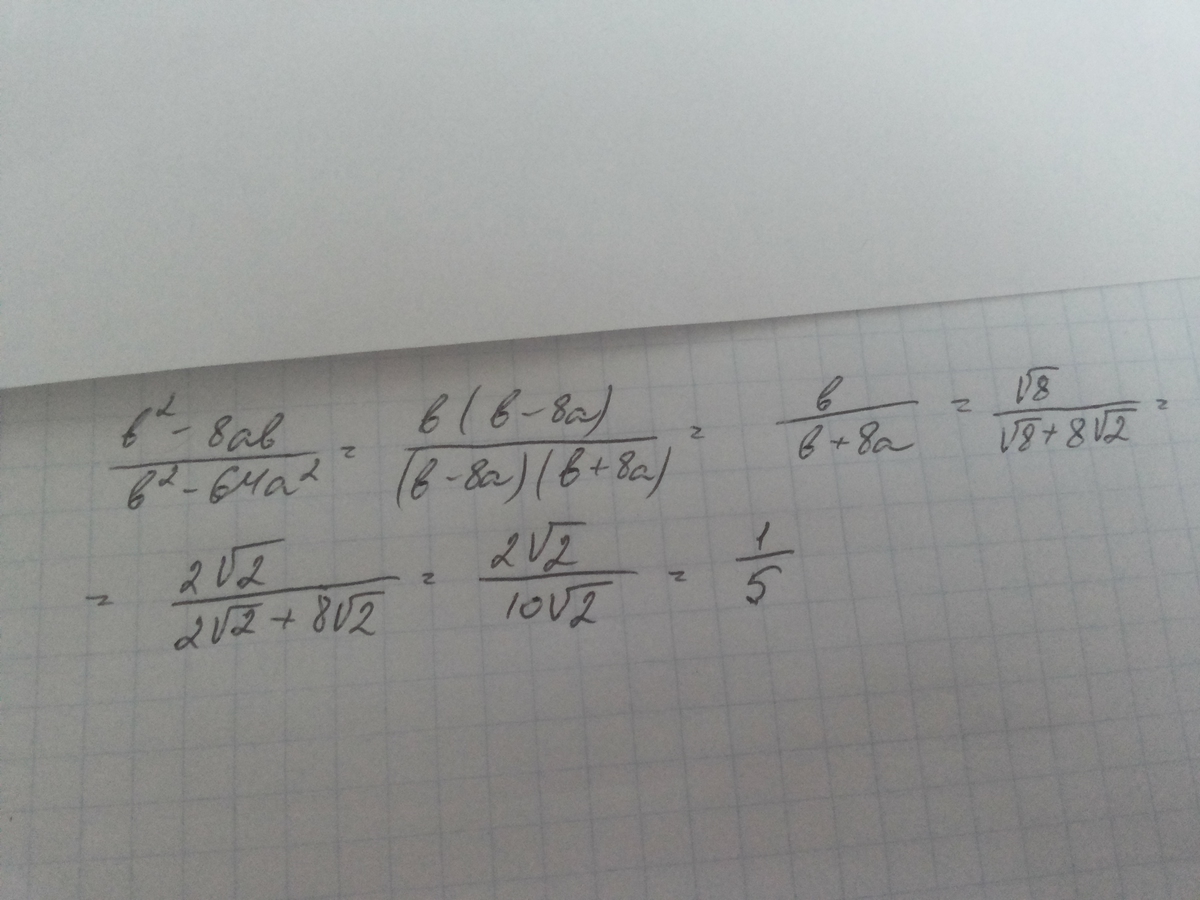 (b² - 8ab)/(b² - 64a²) = (b(b - 8a))/((b - 8a)(b + 8a)) = b/(b + 8a) = √8/(√8 + 8√2) =
= 2√2/(2√2 + 8√2) = 2√2/(10√2) = 1/5